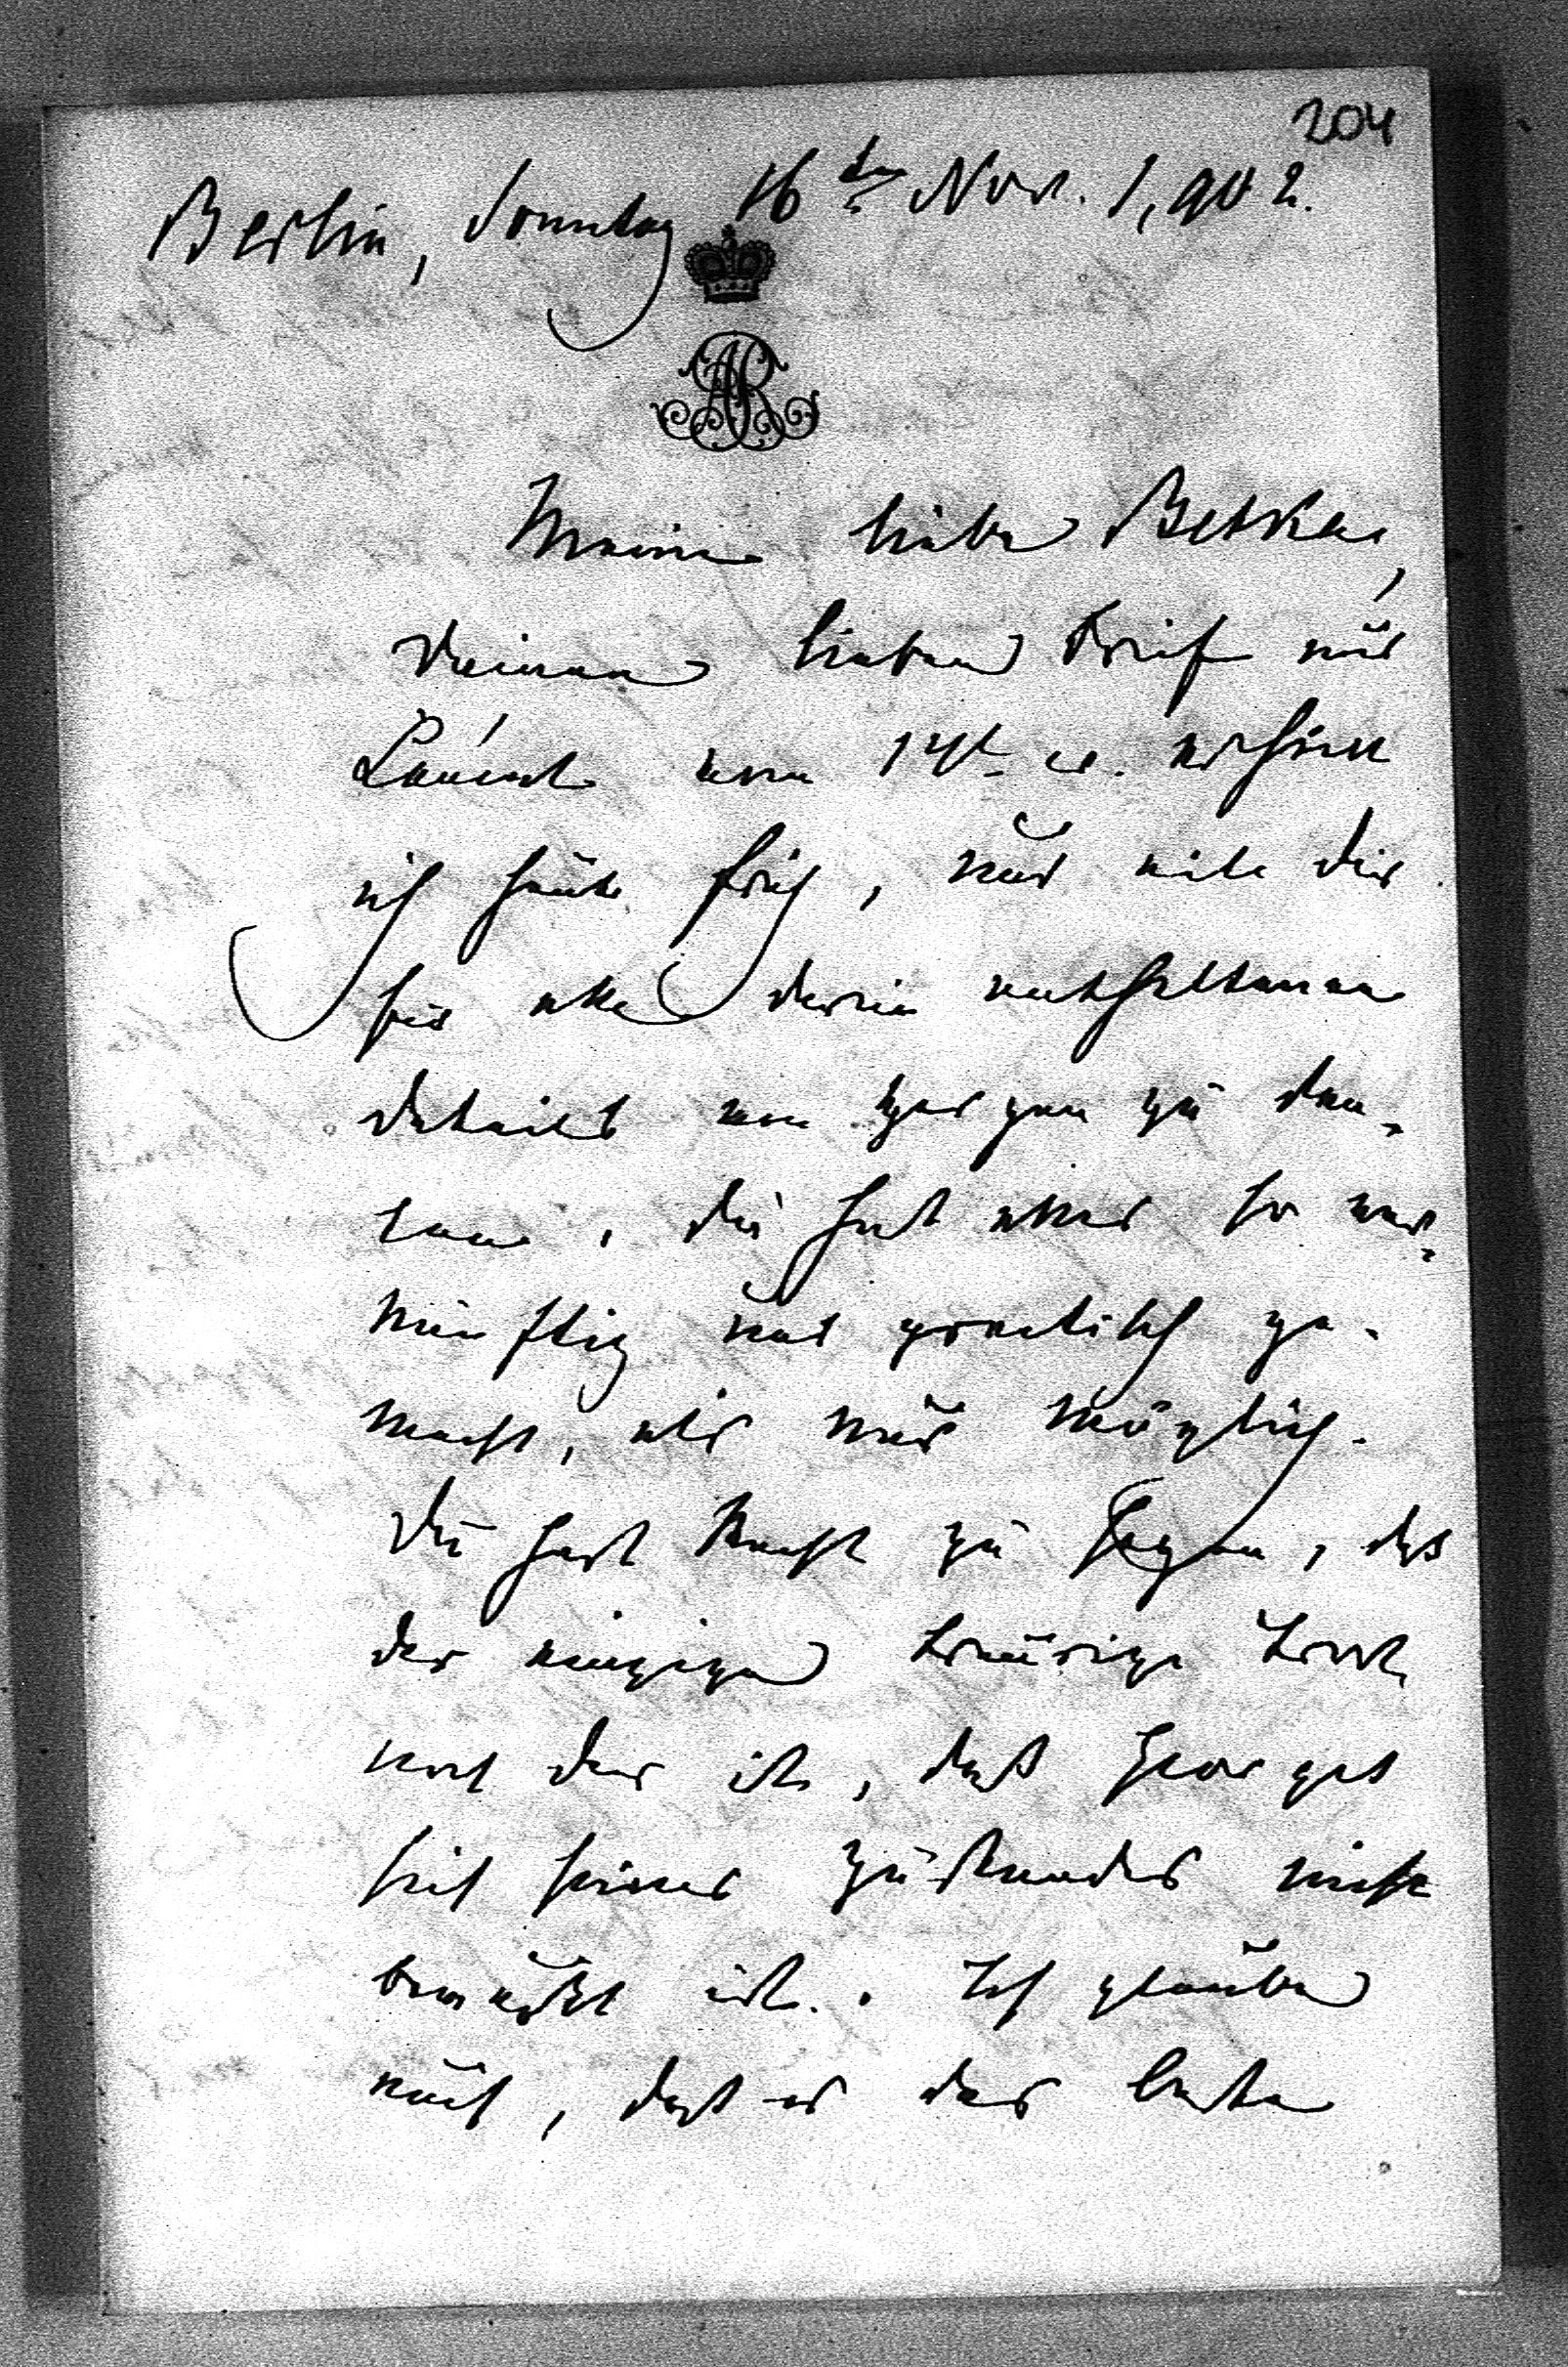 204
Berlin, Sonntag 16ten Nov. 1,902.
AR
Meine liebe Betka,
Deinen lieben Brief aus
Łańcut vom 14t cr. erhielt
ich heute früh, und eile Dir
für alle darin enthaltenen
Details von Herzen zu dan-
ken. Du hast alles so ver-
nünftig und practisch ge-
macht, als nur möglich.
Du hast Recht zu sagen, daß
der einzige traurige Trost
noch der ist, daß Georges
sich seines Zustandes nicht
bewußt ist. Ich glaube
auch, daß es das Beste